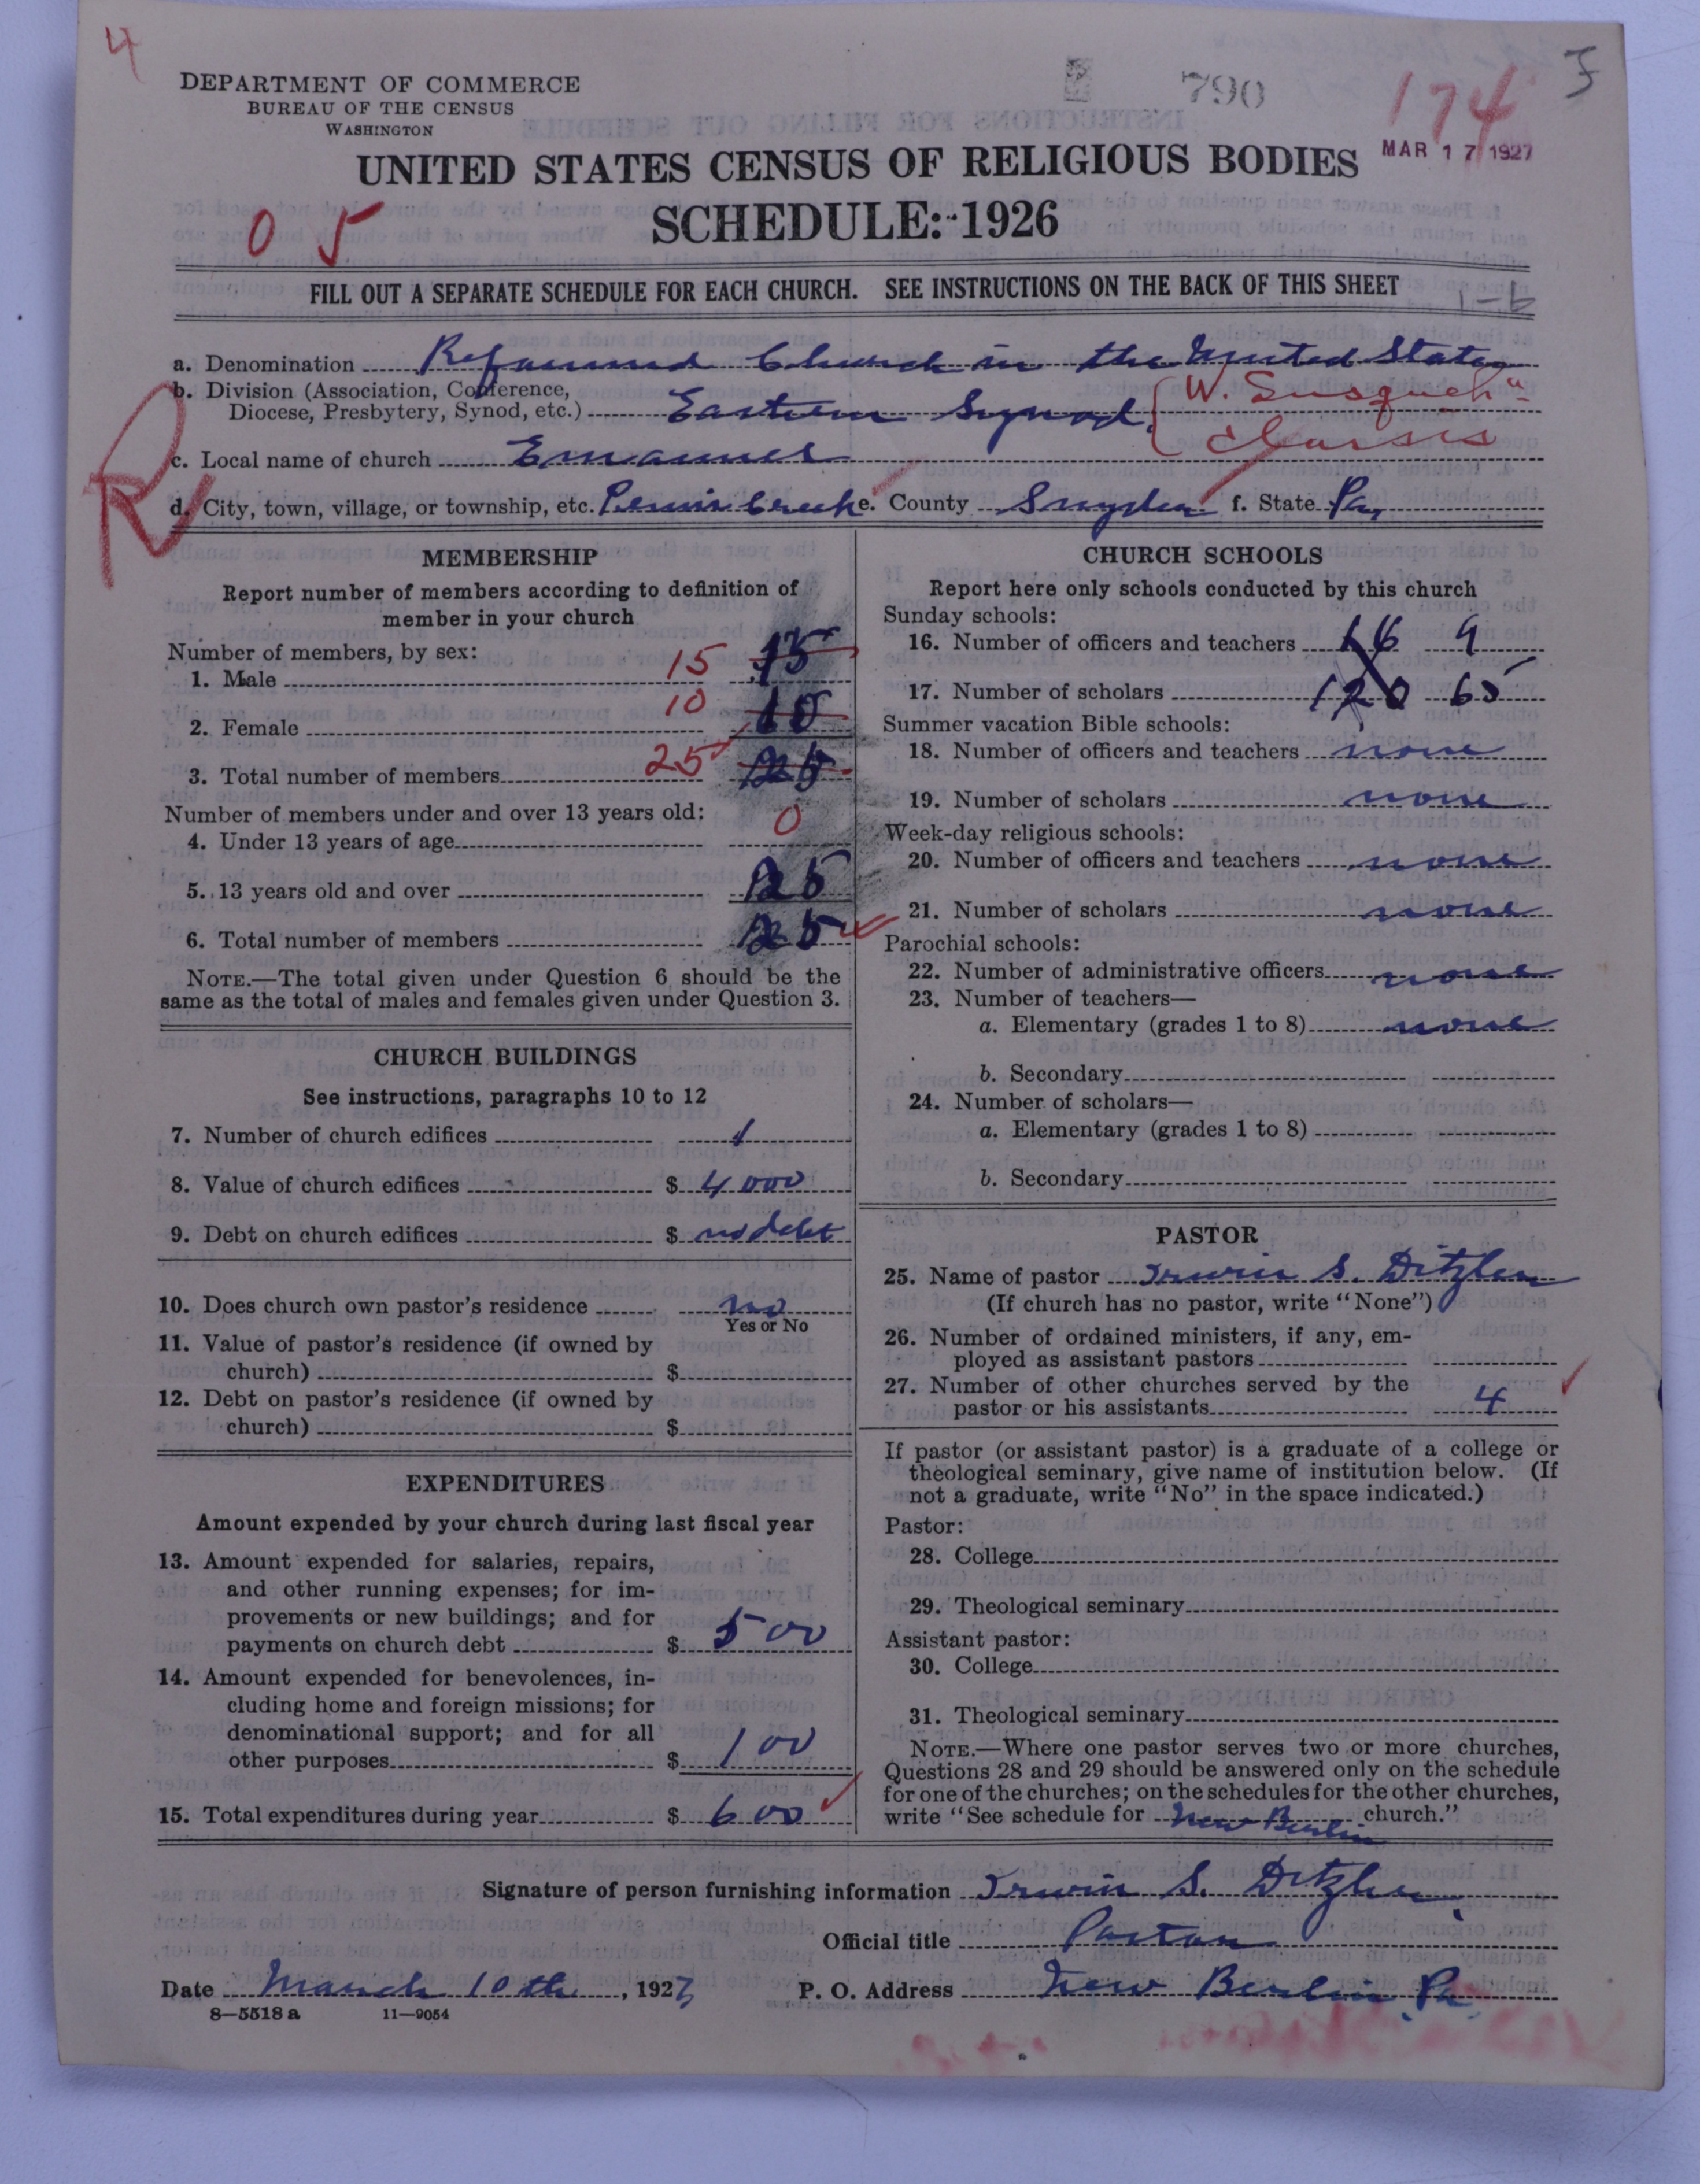 4
DEPARTMENT OF COMMERCE
BUREAU OF THE CENSUS
WASHINGTON
790
174
MAR 17 1927
UNITED STATES CENSUS OF RELIGIOUS BODIES
SCHEDULE: 1926
0 5
FILL OUT A SEPARATE SCHEDULE FOR EACH CHURCH. SEE INSTRUCTIONS ON THE BACK OF THIS SHEET
1-b
a. Denomination Reformed Church in the United States
b. Division (Association, Conference,
Diocese, Presbytery, Synod, etc.) Eastern Synod. (W. Susqueh"
Classis
c. Local name of church Emanuel
R
d. City, town, village, or township, etc. Penns Creek e. County Snyder f. State Pa,
MEMBERSHIP
Report number of members according to definition of
member in your church
Number of members, by sex:
1. Male 15 15
2. Female 10 10
3. Total number of members 25 25
Number of members under and over 13 years old:
4. Under 13 years of age 0
5. 13 years old and over 25
6. Total number of members 25
NOTE.—The total given under Question 6 should be the
same as the total of males and females given under Question 3.
CHURCH BUILDINGS
See instructions, paragraphs 10 to 12
7. Number of church edifices 1
8. Value of church edifices $ 4000
9. Debt on church edifices $ no debt
10. Does church own pastor's residence no
Yes or No
11. Value of pastor's residence (if owned by
church) $
12. Debt on pastor's residence (if owned by
church) $
EXPENDITURES
Amount expended by your church during last fiscal year
13. Amount expended for salaries, repairs,
and other running expenses; for im-
provements or new buildings; and for
payments on church debt $ 500
14. Amount expended for benevolences, in-
cluding home and foreign missions; for
denominational support; and for all
other purposes $ 100
15. Total expenditures during year $ 600
CHURCH SCHOOLS
Report here only schools conducted by this church
Sunday schools:
16. Number of officers and teachers 16 9
17. Number of scholars 120 65
Summer vacation Bible schools:
18. Number of officers and teachers none
19. Number of scholars none
Week-day religious schools:
20. Number of officers and teachers none
21. Number of scholars none
Parochial schools:
22. Number of administrative officers none
23. Number of teachers—
a. Elementary (grades 1 to 8) none
b. Secondary
24. Number of scholars—
a. Elementary (grades 1 to 8)
b. Secondary
PASTOR
25. Name of pastor Irwin S. Ditzler
(If church has no pastor, write "None")
26. Number of ordained ministers, if any, em-
ployed as assistant pastors
27. Number of other churches served by the
pastor or his assistants 4
If pastor (or assistant pastor) is a graduate of a college or
theological seminary, give name of institution below. (If
not a graduate, write "No" in the space indicated.)
Pastor:
28. College
29. Theological seminary
Assistant pastor:
30. College
31. Theological seminary
NOTE.—Where one pastor serves two or more churches,
Questions 28 and 29 should be answered only on the schedule
for one of the churches; on the schedules for the other churches,
write "See schedule for New Berlin church."
Signature of person furnishing information Irwin S. Ditzler.
Official title Pastor
Date March 10th, 1927
P. O. Address New Berlin, Pa.
8—5518 a 11—9054